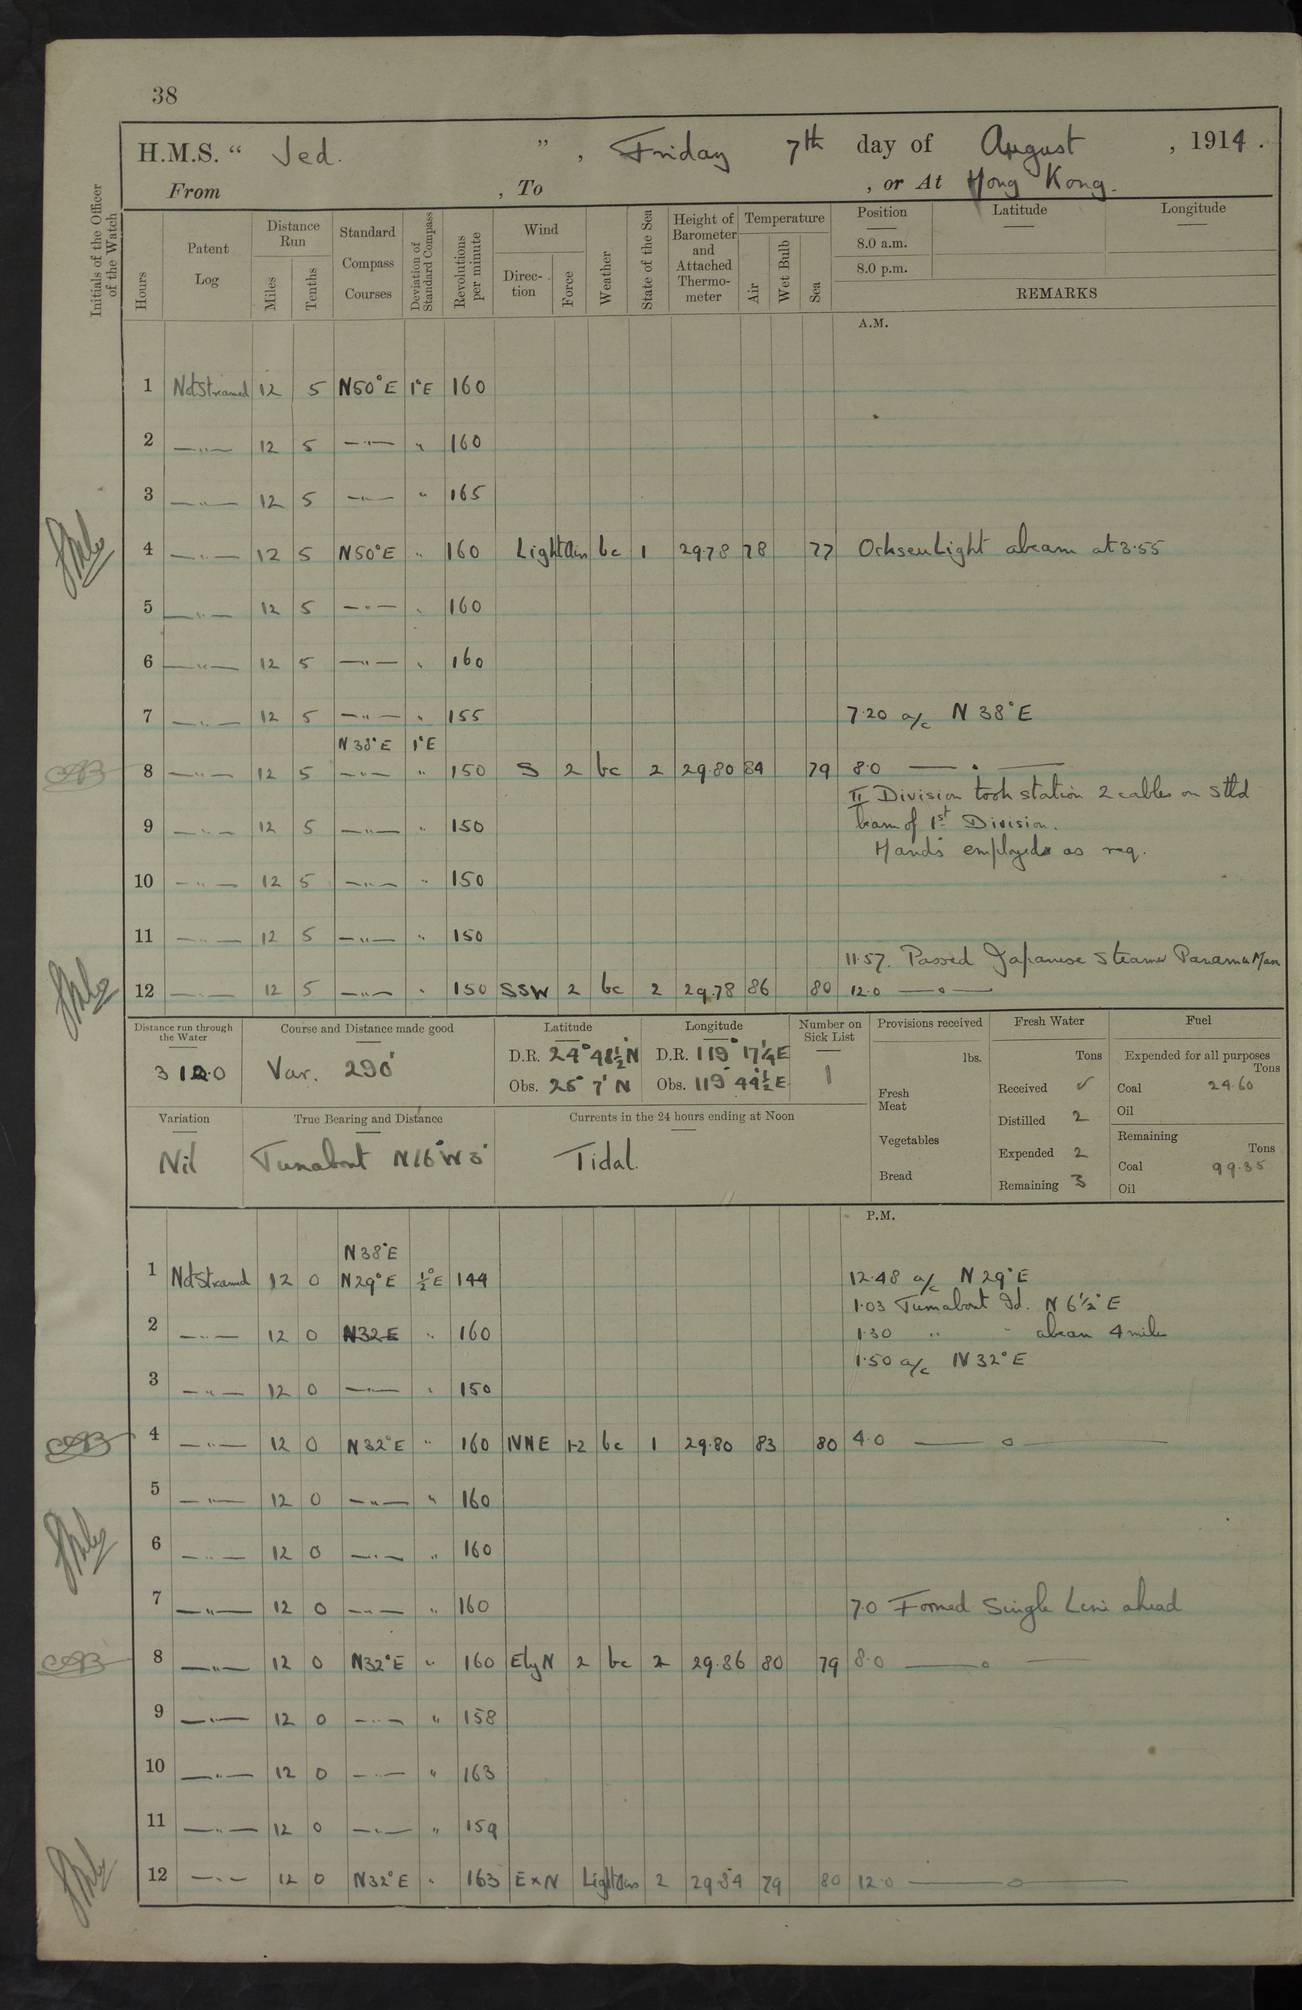 38
H.M.S. “ Jed. ” , Friday 7th day of August , 1914 .
From , To , or At Hong Kong.
Initials of the Officer of the Watch
Hours
Patent Log
Distance Run
Miles
Tenths
Standard Compass Courses
Deviation of Standard Compass
Revolutions per minute
Wind
Direction
Force
Weather
State of the Sea
Height of Barometer and Attached Thermometer
Temperature
Air
Wet Bulb
Sea
Position Latitude Longitude
8.0 a.m.
8.0 p.m.
REMARKS
A.M.
1 Not Streamed 12 5 N50°E 1°E 160
2 —"— 12 5 —"— " 160
3 —"— 12 5 —"— " 165
4 —"— 12 5 N50°E " 160 Light Airs bc 1 29.78 78 77 Ocksen Light abeam at 3.55
5 —"— 12 5 —"— " 160
6 —"— 12 5 —"— " 160
7 —"— 12 5 —"— " 155 7.20 a/c N 38°E
N38°E 1°E
8 —"— 12 5 —"— " 150 S 2 bc 2 29.80 84 79 8.0 — . —
II Division took station 2 cables on Stbd
9 —"— 12 5 —"— " 150 beam of 1st Division.
Hands employed as req.
10 —"— 12 5 —"— " 150
11 —"— 12 5 —"— " 150
11.57. Passed Japanese Steamer Panama Maru
12 —"— 12 5 —"— " 150 SSW 2 bc 2 29.78 86 80 12.0 —o—
Distance run through the Water
312.0
Course and Distance made good
Var. 290'
Latitude
D.R. 24° 48½ N
Obs. 25° 7' N
Longitude
D.R. 119° 17¼ E
Obs. 119° 44½ E
Number on Sick List
1
Provisions received
lbs.
Fresh Meat
Vegetables
Bread
Fresh Water
Tons
Received ✓
Distilled 2
Expended 2
Remaining 3
Fuel
Expended for all purposes
Tons
Coal 24.60
Oil
Remaining
Tons
Coal 99.35
Oil
Variation
Nil
True Bearing and Distance
Turnabout N16°W 5'
Currents in the 24 hours ending at Noon
Tidal.
P.M.
N38°E
1 Not Streamed 12 0 N29°E ½°E 144 12.48 a/c N 29°E
1.03 Turnabout Id. N 6½°E
2 —"— 12 0 N32E " 160 1.30 " " abeam 4 miles
1.50 a/c N 32°E
3 —"— 12 0 —"— " 150
4 —"— 12 0 N32°E " 160 NNE 1-2 bc 1 29.80 83 80 4.0 —o—
5 —"— 12 0 —"— " 160
6 —"— 12 0 —"— " 160
7 —"— 12 0 —"— " 160 7.0 Formed Single Line ahead
8 —"— 12 0 N32°E " 160 ElyN 2 bc 2 29.86 80 79 8.0 —o—
9 —"— 12 0 —"— " 158
10 —"— 12 0 —"— " 163
11 —"— 12 0 —"— " 159
12 —"— 12 0 N32°E " 163 ExN Light Airs 2 29.84 79 80 12.0 —o—